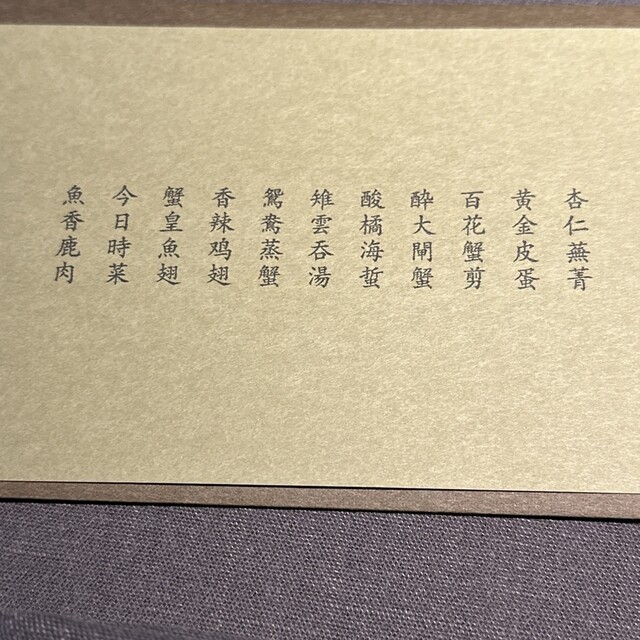 杏仁蕪菁
黄金皮蛋
百花蟹剪
醉大閘蟹
酸橘海蜇
雉雲吞湯
鴛鴦蒸蟹
香辣鸡翅
蟹皇魚翅
今日時菜
魚香鹿肉